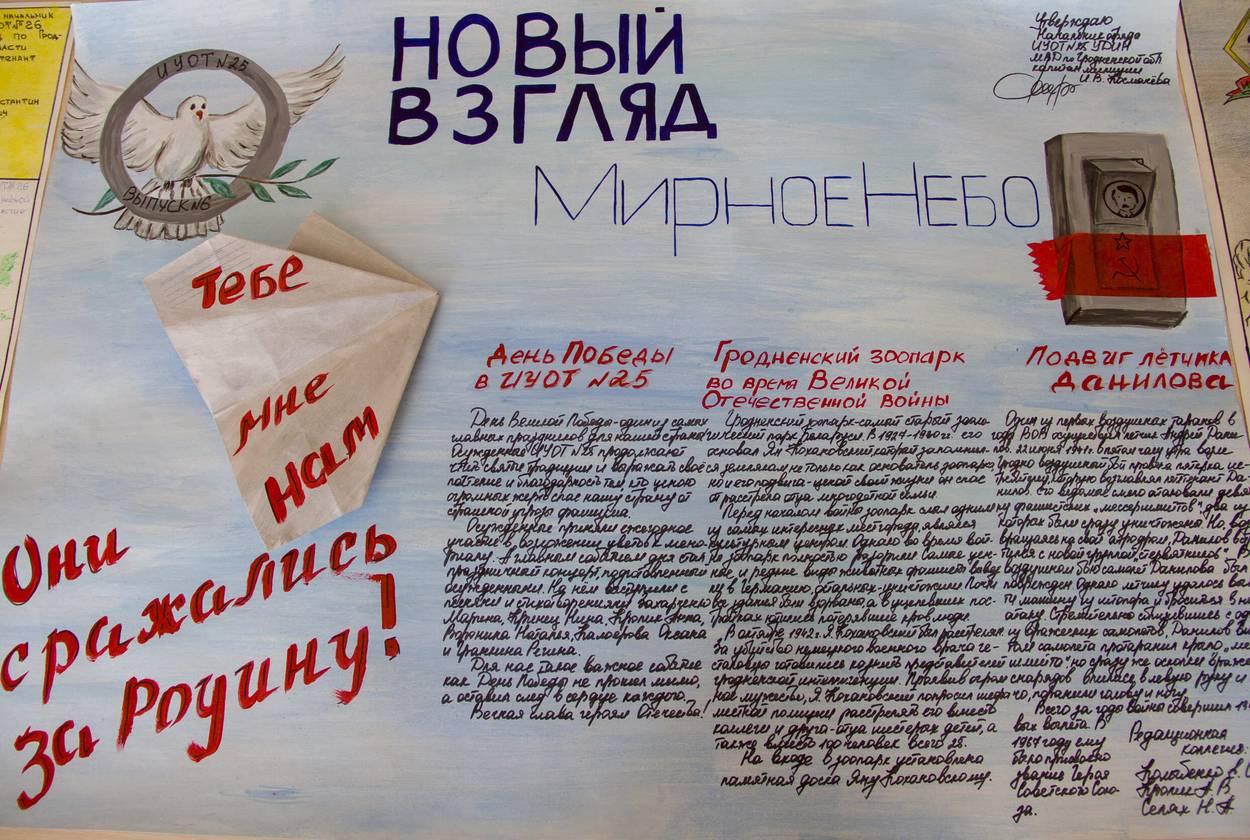 НАЧАЛЬНИК
ИУОТ №26
ПО ГРОД-
ИУОТ №25
ВЫПУСК №6
НОВЫЙ
ВЗГЛЯД
Мирное Небо
Утверждаю
Начальник отряда
ИУОТ №25 УДИН
МВД по Гродненской обл.
капитан милиции
И.В.
Тебе
мне
нам
Они
сражались
за Родину!
День Победы
в ИУОТ №25
День Великой Победы-один из самых
главных праздников для нашей страны.
Осужденные ИУОТ №25 продолжают
чтить святые традиции и выражать своё
почтение и благодарность тем, кто ценою
огромных жертв спас нашу страну от
страшной угрозы фашизма.
Осужденные приняли ежегодное
участие в возложении цветов к мемо-
риалу. А главным событием дня стал
праздничный концерт, подготовленный
осужденными. На нем выступили с
песнями и стихотворениями Захарченко
Марина, Кринец Нина, Кропис Анна,
Воронина Наталья, Оксана
и Гранкина Регина.
Для нас такое важное событие
как День Победы не прошел мимо,
а оставил след в сердце каждого.
Вечная слава героям Отечества!
Гродненский зоопарк
во время Великой
Отечественной войны
Гродненский зоопарк-самый старый зооло-
гический парк Беларуси. В 1927 его
основал Ян Кохановский, который запомнил-
ся землякам не только как основатель зоопарка,
но и его подвига-ценой своей жизни он спас
от расстрела отца многодетной семьи.
Перед началом войны зоопарк стал одним
из самых интересных мест города, являлся
культурным центром. Однако во время вой-
ны зоопарк полностью разорили. Самые цен-
ные и редкие виды животных фашисты вывез-
ли в Германию, остальных-уничтожили. Почти
все здания были взорваны, а в уцелевших пос-
тройках ютились потерявшие кров люди.
В октябре 1942г. Я. Кохановский был расстрелян.
За убийство немецкого военного врача ге-
стаповцы готовились казнить представителей
гродненской интеллигенции. Проявив огром-
ное мужество, Я. Кохановский попросил шефа
местной полиции расстрелять его вместо
коллеги и друга-отца шестерых детей, а
также вместо 100 человек всего 25.
На входе в зоопарк установлена
памятная доска Яну Кохановскому.
Подвиг лётчика
Данилова
Один из первых воздушных таранов в
годы ВОВ осуществил летчик Андрей Дани-
лов. 22 июня 1941г. в пятом часу утра возле
Гродно воздушный бой приняла пятерка ис-
требителей, которую возглавлял лейтенант Да-
нилов. Его ведомые смело атаковали девят-
ку фашистских „мессершмиттов", два из
которых были сразу уничтожены. Но воз-
вращаясь на свой аэродром, Данилов встре-
тился с новой группой стервятников. В
воздушном бою самолет Данилова был
поврежден. Однако летчику удалось выве-
ти машину из штопора и броситься в но
атаку. Стремительно сблизившись с од
из вражеских самолетов, Данилов
протаранил крыло „ме
", но сразу же осколки враже
снарядов впились в левую руку и
, поранили голову и ногу.
Всего за годы войны совершил
вых вылета. В
1967 году ему
было присвоено
звание Героя
Советского Сою-
за.
Редакционная
коллегия:
Кропис А.В
Селях Н.А